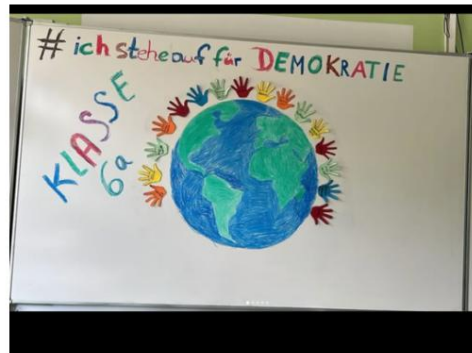 # ich stehe auf für DEMOKRATIE
KLASSE
6a